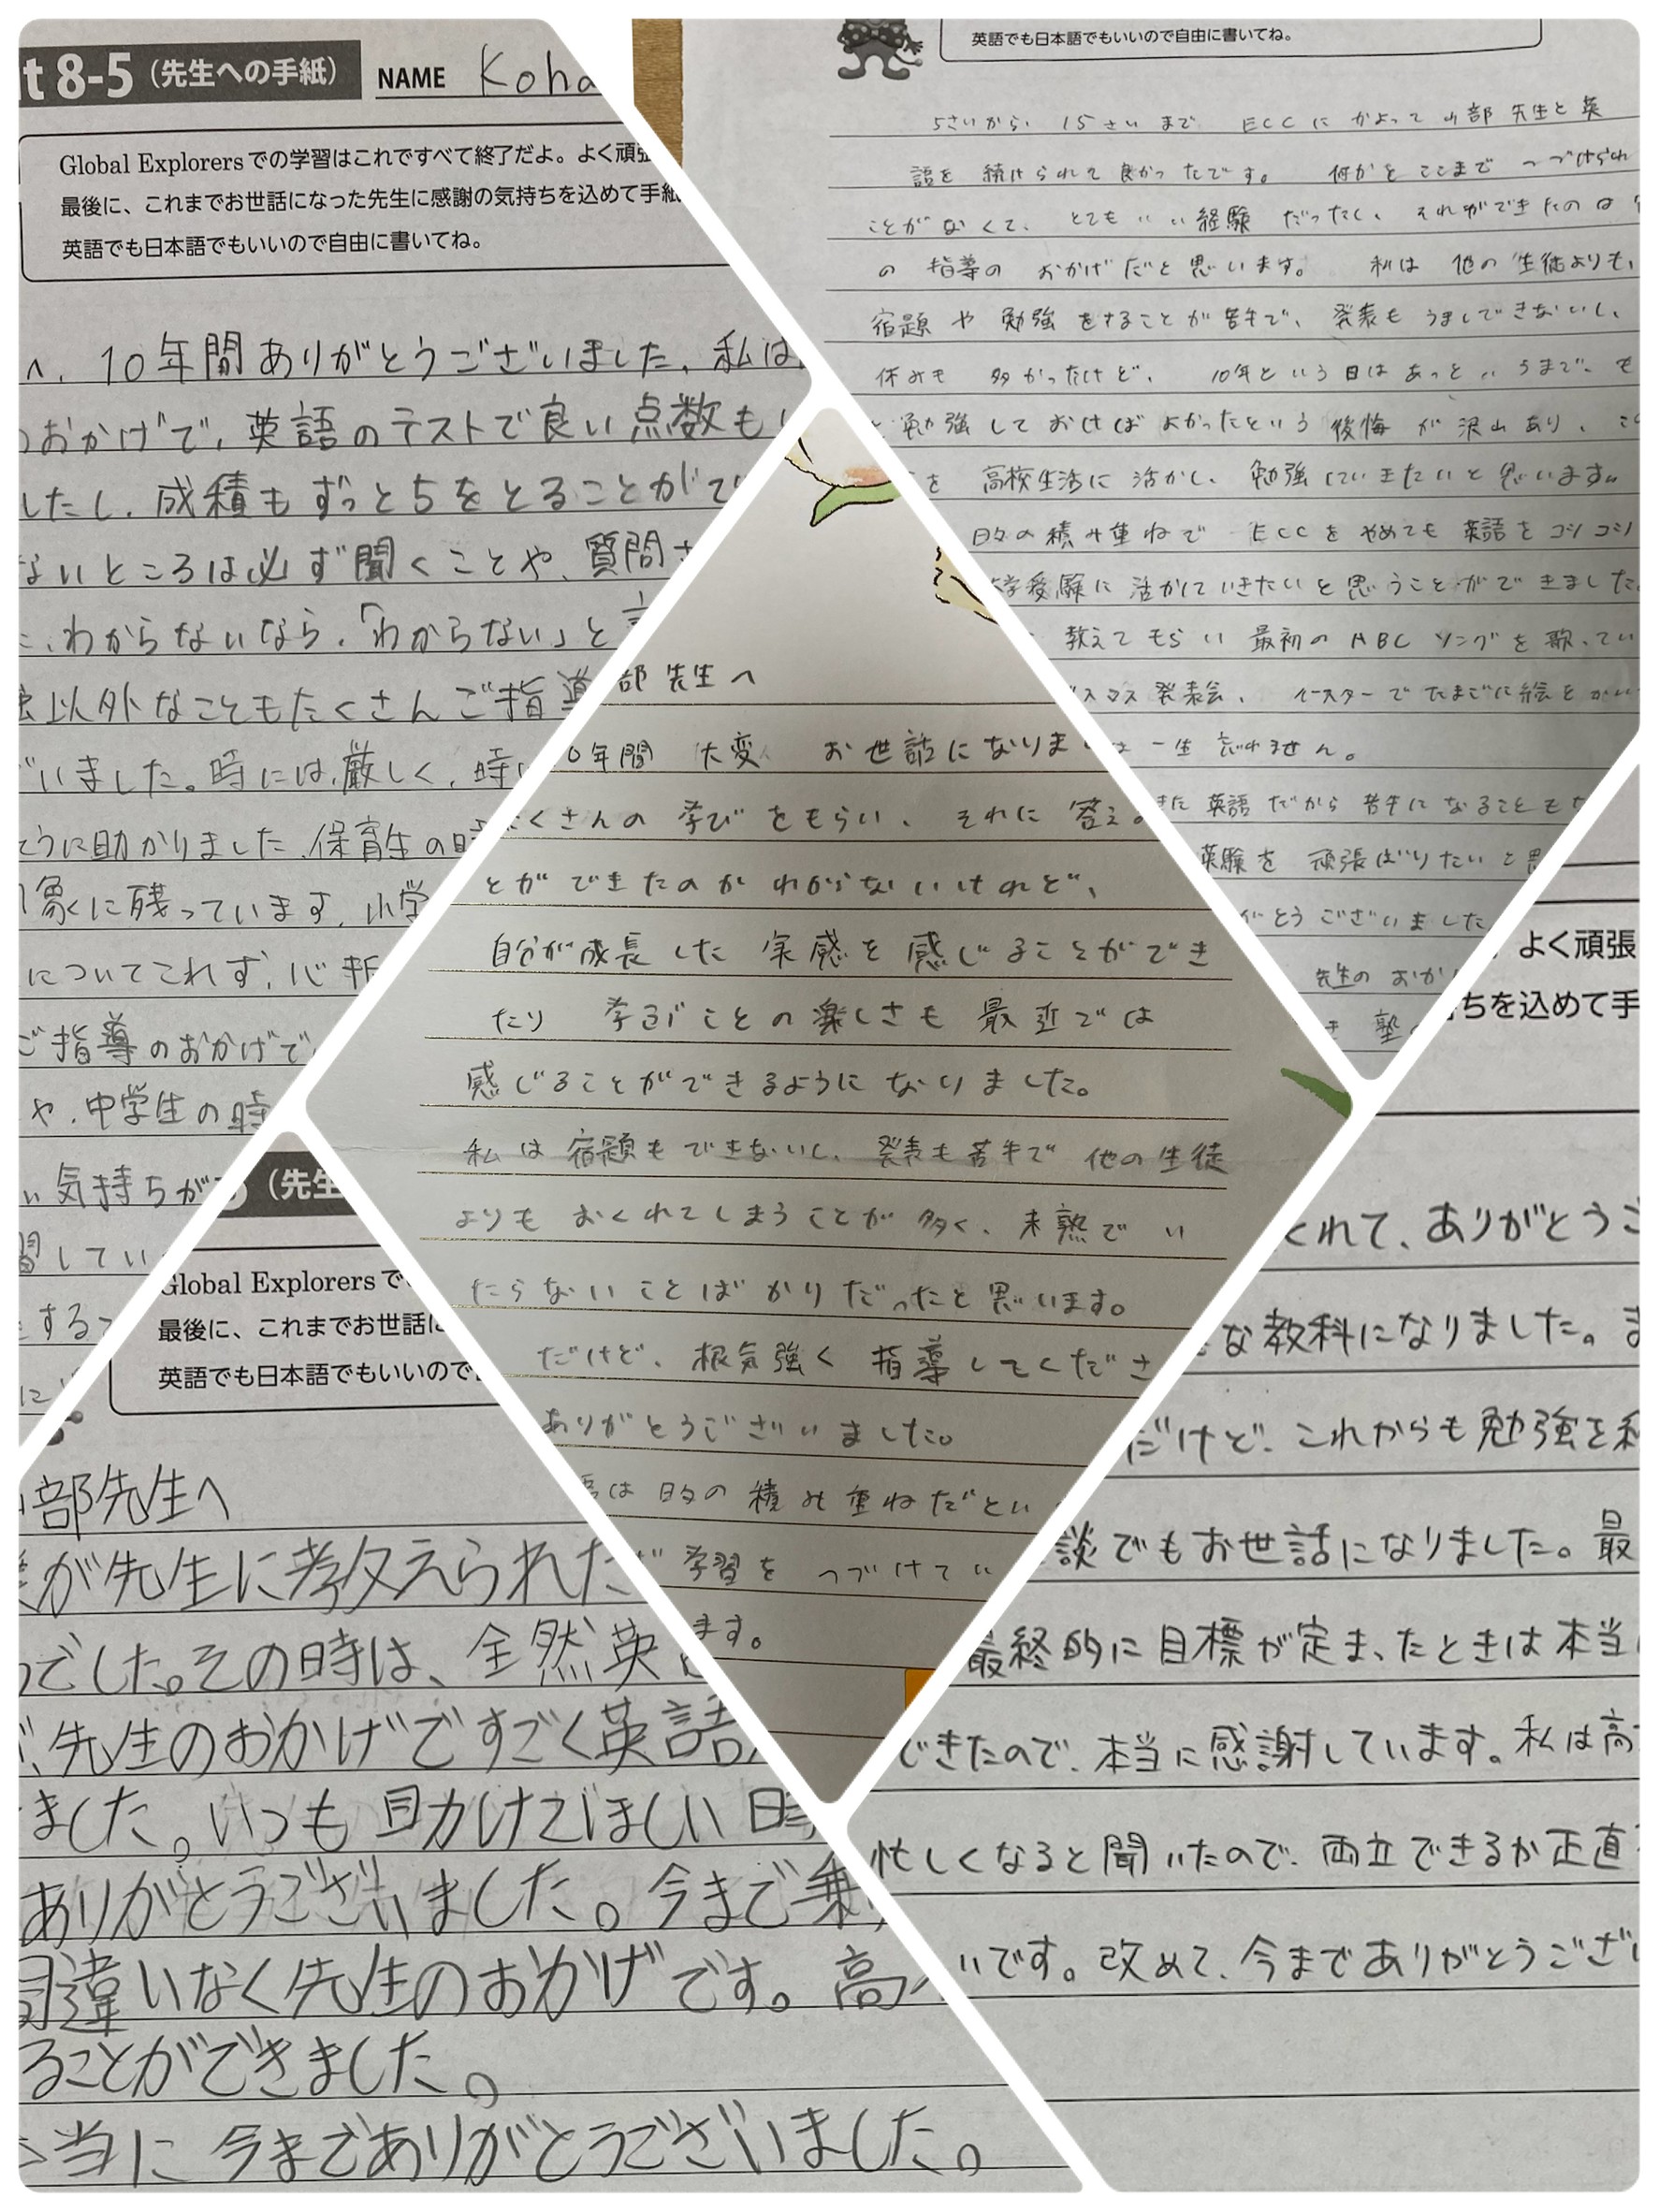 t 8-5（先生への手紙） NAME Koha
Global Explorersでの学習はこれですべて終了だよ。よく頑張
最後に、これまでお世話になった先生に感謝の気持ちを込めて手紙
英語でも日本語でもいいので自由に書いてね。
へ、10年間ありがとうございました。私は
おかげで、英語のテストで良い点数も
したし、成績もずっと5をとることがで
ないところは必ず聞くことや、質問さ
、わからないなら、「わからない」と言
以外なこともたくさんご指導
いました。時には厳しく、時
うに助かりました。保育生の時
象に残っています。小学
についてこれず、心配
ご指導のおかげで
や、中学生の時
い気持ちが
習してい
する
英語でも日本語でもいいので自由に書いてね。
5さいから 15さいまで ECCに かよって 山部先生と英
語を 続けられて良かったです。 何かを ここまで つづけられ
ことがなくて、 とても いい経験 だったし、 それができたのは
の 指導の おかげだと思います。 私は 他の生徒よりも、
宿題や 勉強をすることが苦手で、 発表も うましできないし、
休みも 多かったけど、 10年という日は あっというまで、も
と勉強しておけばよかったという 後悔が沢山あり、こ
を 高校生活に 活かし、 勉強していきたいと思います。
日々の積み重ねで ECCをやめても 英語をコツコツ
学受験に活かしていきたいと思うことができました。
教えてもらい 最初の ABCソングを歌ってい
スマス発表会、 イースターでたまごに絵をかい
は一生忘れません。
きた 英語だから 苦手になることもな
英験を 頑張ばりたいと思
がとうございました
先生のおか
塾
部先生へ
0年間 大変 お世話になりま
くさんの 学びをもらい、 それに 答え
とができたのか わからないけれど、
自分が成長した 実感を感じることができ
たり 学ぶことの楽しさも 最近では
感じることができるようになりました。
私は宿題もできないし、発表も苦手で 他の生徒
よりも おくれてしまうことが多く、未熟で い
たらないことばかりだったと思います。
だけど、根気強く 指導してくださ
ありがとうございました。
は 日々の積み重ねだとい
学習を つづけてい
ます。
よく頑張
ちを込めて手
くれて、ありがとうご
な教科になりました。ま
だけど、これからも勉強を
談でもお世話になりました。最
最終的に目標が定まったときは本当
できたので、本当に感謝しています。私は高
忙しくなると聞いたので、両立できるか正直
いです。改めて、今までありがとうござい
（先生
Global Explorersで
最後に、これまでお世話に
英語でも日本語でもいいので
部先生へ
が先生に教えられた
でした。その時は、全然英
先生のおかげですごく英語
ました。いつも助けてほしい時
ありがとうございました。今まで乗
間違いなく先生のおかげです。高
ることができました。
当に今までありがとうございました。